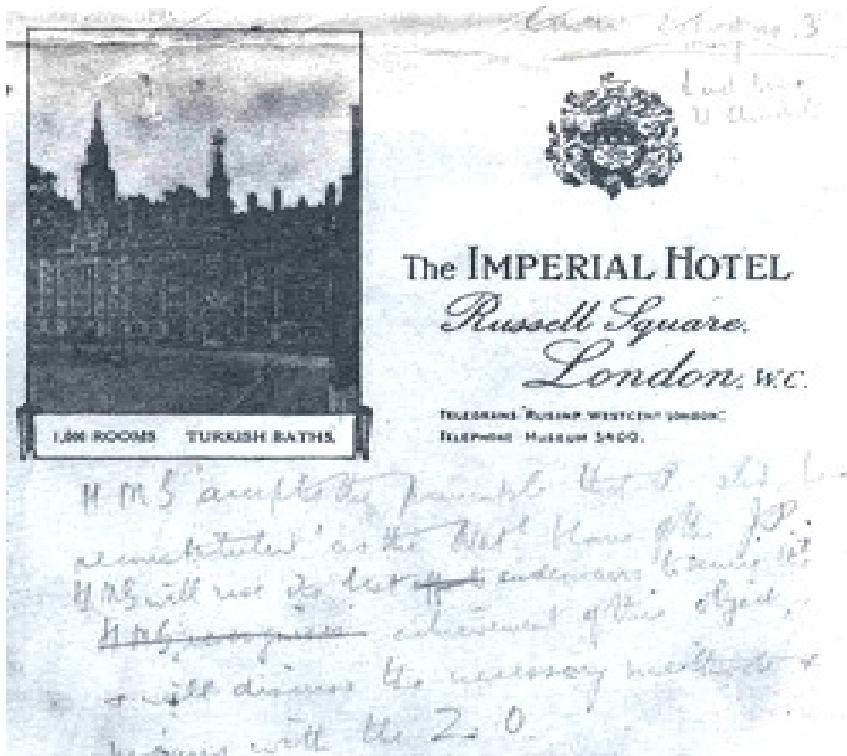 3
The IMPERIAL HOTEL
Russell Square,
London, W.C.
TELEGRAMS "RUSIMP WESTCENT LONDON".
TELEPHONE MUSEUM
1,000 ROOMS TURKISH BATHS.
H M G accepts the principle that P. shd. be
reconstituted as the Natl. Home of the J.P.
HMG will use its best endeavours to secure the
HMG recognises achievement of this object,
& will discuss the necessary methods &
means with the Z.O.